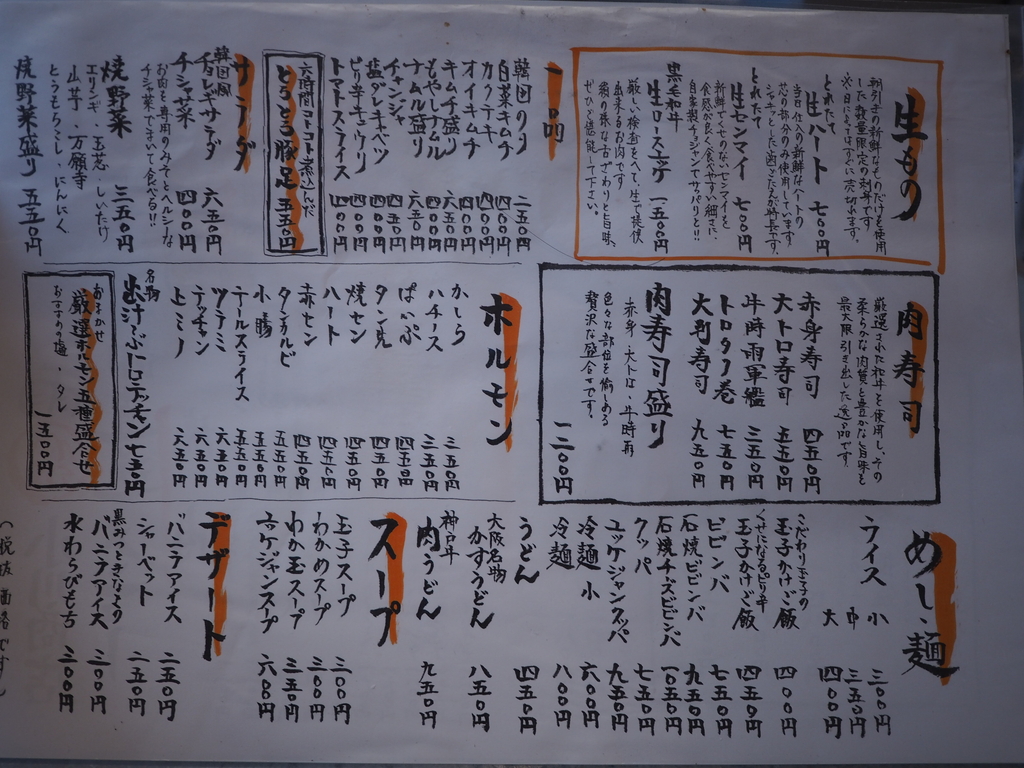 生もの
朝引きの新鮮なものだけを使用
した数量限定の刺身です
※日によてはすぐに売切れます。
とれたて
生ハート 七〇〇円
当日仕入の新鮮なハートの
芯の部分のみ使用しています
シャキッとした歯ごたえが特長です。
とれたて
生センマイ 七〇〇円
新鮮でくせのないセンマイを
食感が良く食べやすい細さに、
自家製チョジャンでサッパリと!!
黒毛和牛
生ロースユッケ 一五〇〇円
厳しい検査をへて、生で提供
出来るお肉です
ぜひご堪能して下さい。
一品
韓国のり 二五〇円
白菜キムチ 四〇〇円
カクテキ 四〇〇円
オイキムチ 四〇〇円
キムチ盛り 六五〇円
もやしナムル 四〇〇円
ナムル盛り 六五〇円
チャンジャ 四五〇円
塩ダレキャベツ 四〇〇円
ピリ辛キュウリ 四〇〇円
トマトスライス 四〇〇円
六時間コトコト煮込んだ
とろとろ豚足 五五〇円
サラダ
韓国風
チョレギサラダ 六五〇円
チシャ菜 四〇〇円
お肉と専用のみそとヘルシーな
チシャ菜でまいて食べる!!
焼野菜 三五〇円
エリンギ、玉葱、しいたけ
山芋、万願寺
とうもろこし、にんにく
焼野菜盛り 五五〇円
肉寿司
厳選された和牛を使用し、その
柔らかな肉質と豊かな旨味を
最大限引き出した逸品です。
赤身寿司 四五〇円
大トロ寿司 五五〇円
牛時雨軍艦 三五〇円
トロタク巻 七五〇円
大判寿司 九五〇円
肉寿司盛り 一二〇〇円
赤身、大トロ、牛時雨
色々な部位を愉しめる
贅沢な盛合せです。
ホルモン
かしら 三五〇円
ハチース 三五〇円
ぱいぷ 四五〇円
タン先 四五〇円
焼セン 四五〇円
ハート 四五〇円
赤セン 四五〇円
タンカルビ 五五〇円
小腸 五五〇円
テールスライス 五五〇円
ツラミ 六五〇円
テッチャン 六五〇円
上ミノ 六五〇円
名物
出汁しゃぶトロテッチャン 七五〇円
おまかせ
厳選ホルモン五種盛合せ 一五〇〇円
おすすめの塩・タレ
めし、麺
ライス 小 三〇〇円
中 三五〇円
大 四〇〇円
こだわり玉子の
玉子かけご飯 四〇〇円
くせになるピリ辛
玉子かけご飯 四五〇円
ビビンバ 七五〇円
石焼ビビンバ 九五〇円
石焼チーズビビンバ 一〇五〇円
クッパ 七五〇円
ユッケジャンクッパ 九五〇円
冷麺 小 六〇〇円
冷麺 八〇〇円
うどん 四五〇円
大阪名物
かすうどん 八五〇円
神戸牛
肉うどん 九五〇円
スープ
玉子スープ 三〇〇円
わかめスープ 三〇〇円
わか玉スープ 三五〇円
ユッケジャンスープ 六八〇円
デザート
バニラアイス 二五〇円
シャーベット 二五〇円
黒みつときなこの
バニラアイス 三〇〇円
水わらびもち 三〇〇円
(税抜価格です。)